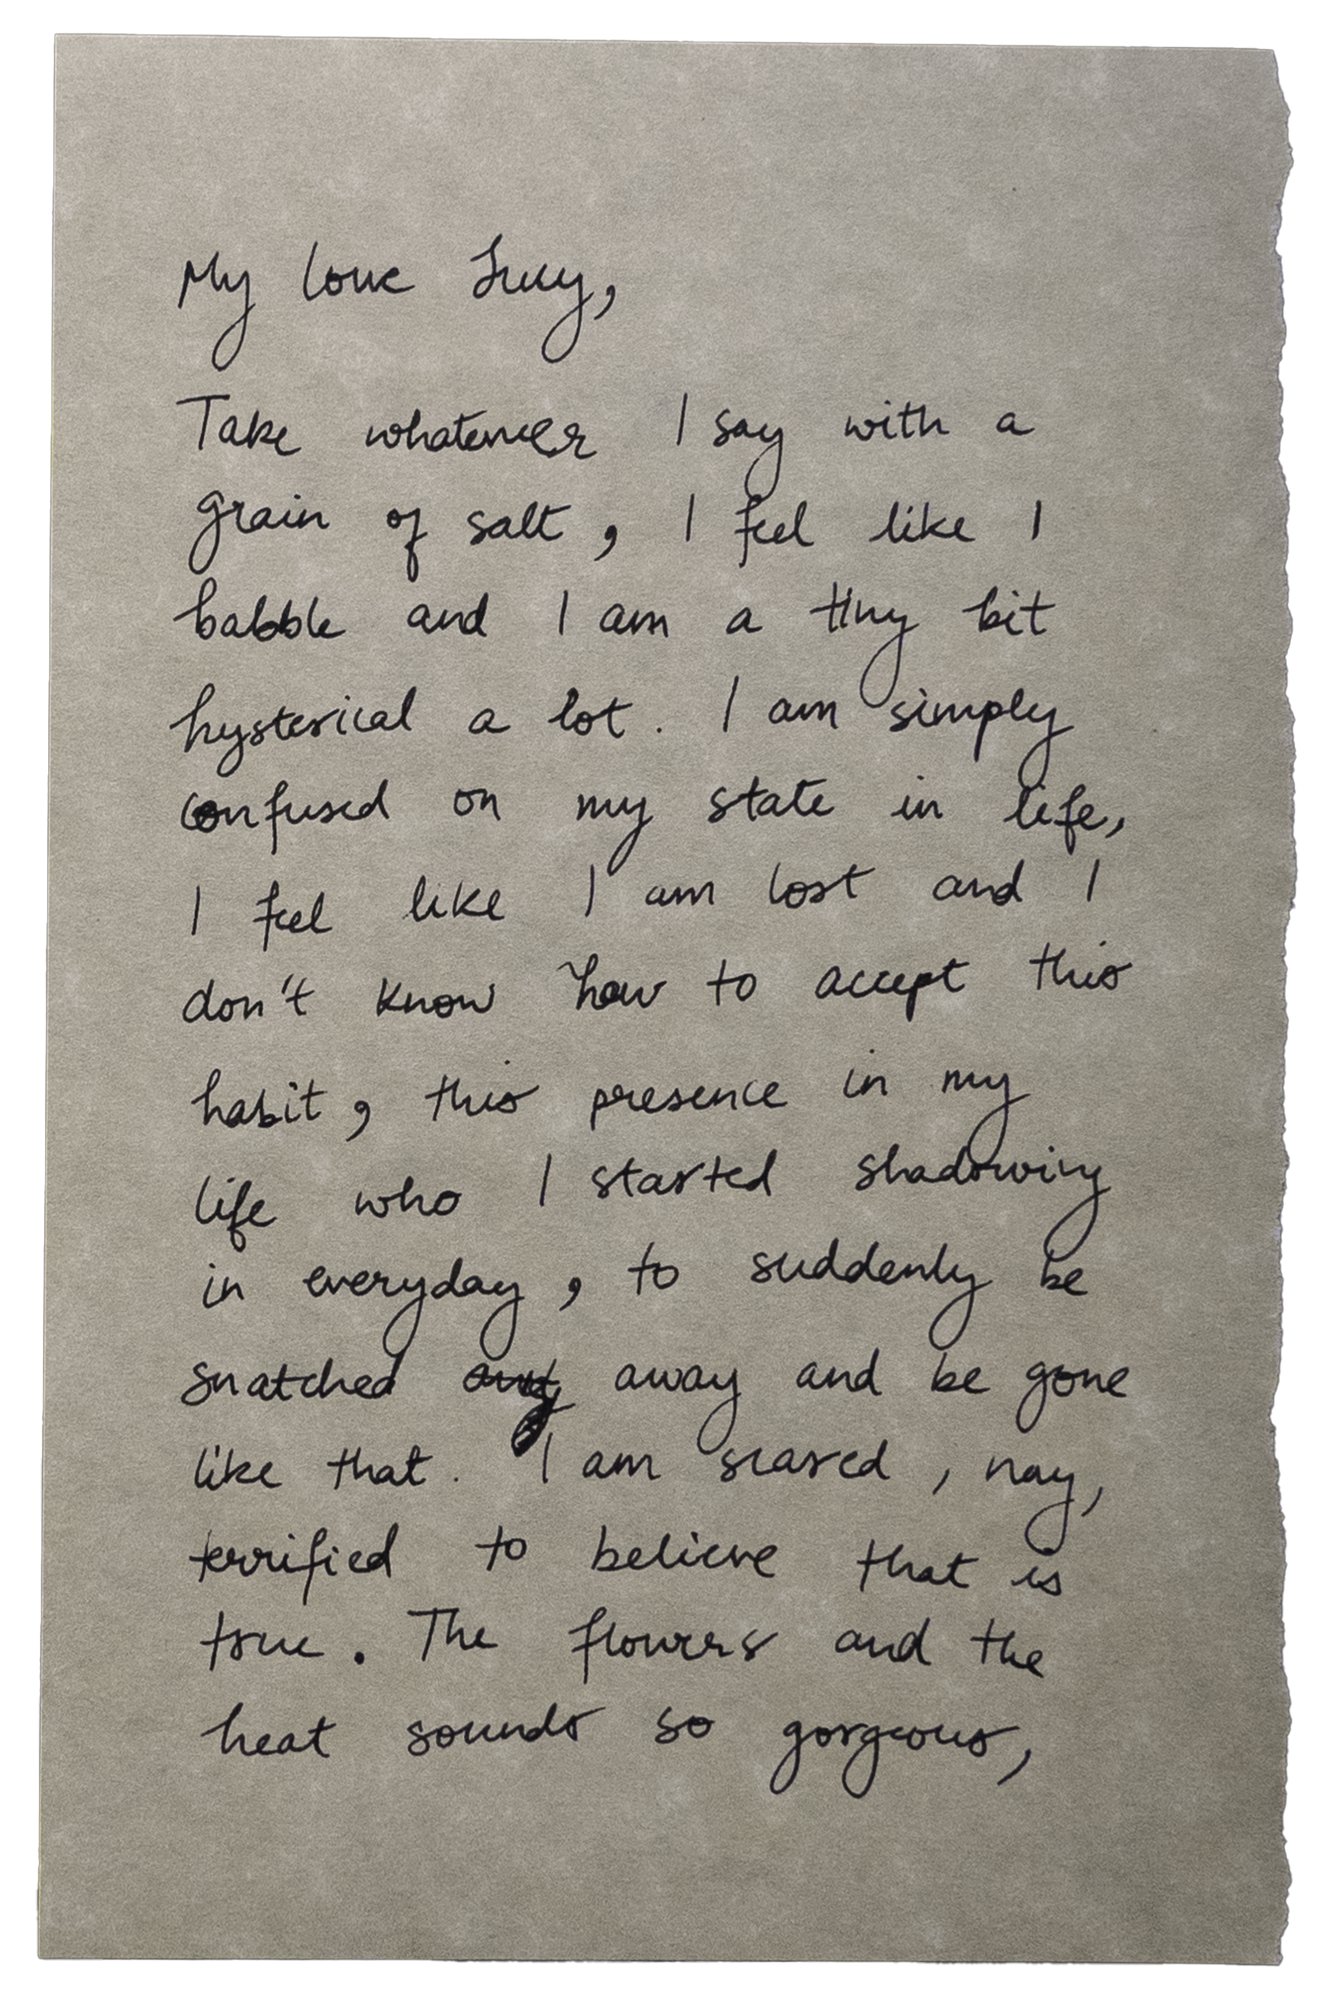 My love Lucy,
Take whatever I say with a
grain of salt, I feel like I
babble and I am a tiny bit
hysterical a lot. I am simply
confused on my state in life,
I feel like I am lost and I
don't know how to accept this
habit, this presence in my
life who I started shadowing
in everyday, to suddenly be
snatched away and be gone
like that. I am scared, nay,
terrified to believe that is
true. The flowers and the
heat sounds so gorgeous,